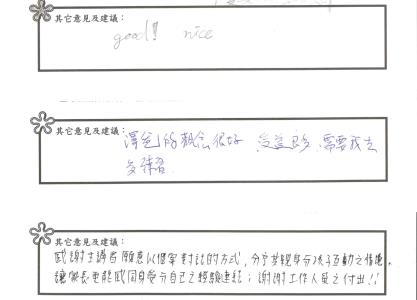 其它意見及建議：
good!! nice
其它意見及建議：
澤爸的概念很好 受益良多，需要我去
多練習.
其它意見及建議：
感謝主講者願意以個案對談的方式，分享其親身分 子互動之情境，
讓家長更能感同身受分自己之經驗連結；謝謝工作人員之付出!!